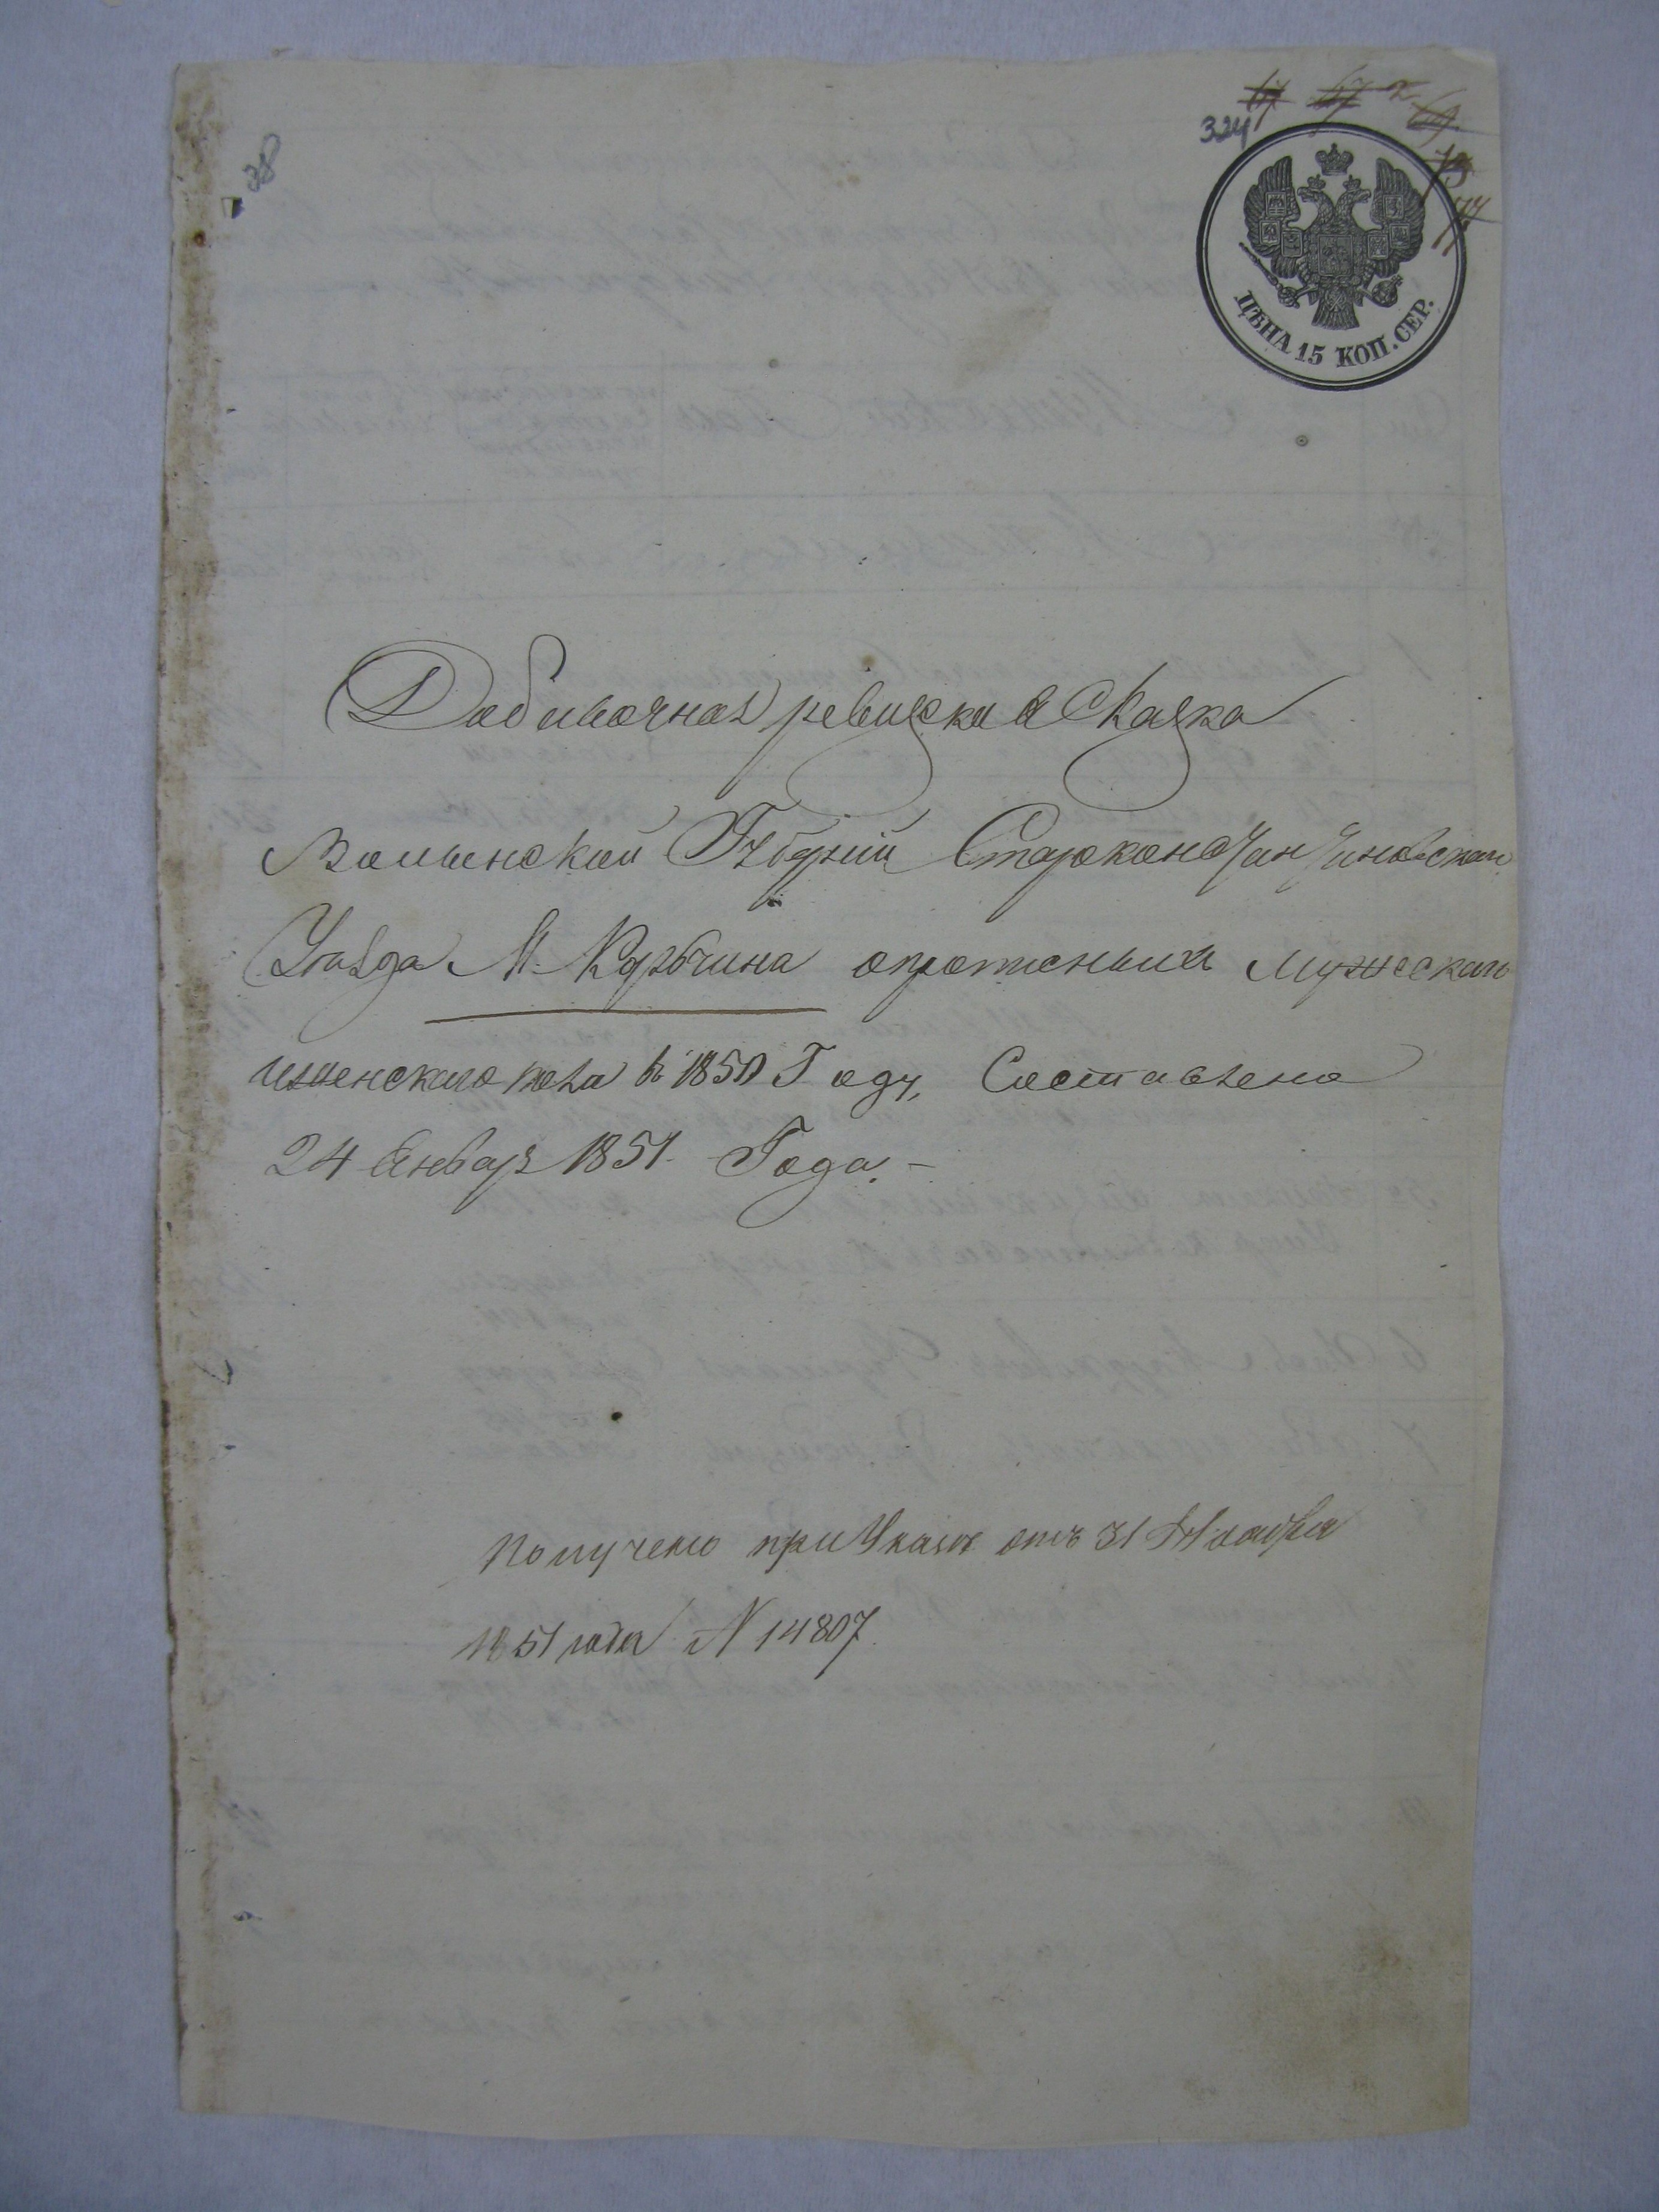 324
38
ЦѢНА 15 КОП. СЕР.
Добавочная ревизская Сказка
Волынской Губерніи Староконстантиновскаго
Уѣзда М. Корбчина опротенныхъ мужескаго
иженскаго пола въ 1850 Году, Составлена
24 Январъ 1851. Года. –
Получено при Указѣ отъ 31 Ноября
1851 года N 14807.